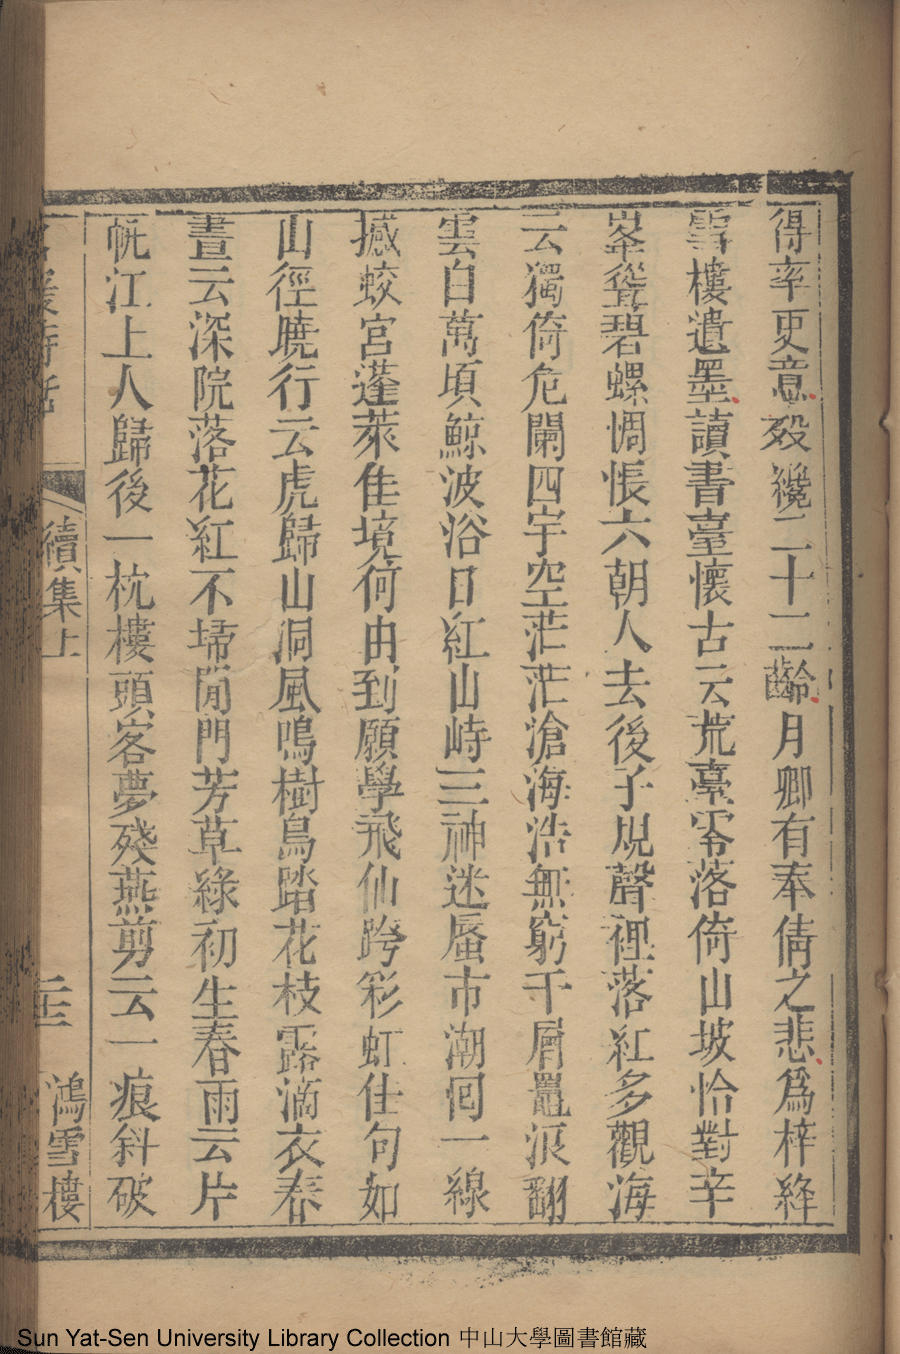 得率更意歿纔二十二齡月卿有奉倩之悲爲梓絳
雪樓遺墨讀書臺懷古云荒臺零落倚山坡恰對辛
峯聳碧螺惆悵六朝人去後子規聲裡落紅多觀海
云獨倚危闌四宇空茫茫滄海浩無窮千層鼉浪翻
雲白萬頃鯨波浴日紅山峙三神迷蜃市潮回一線
撼蛟宮蓬萊佳境何由到願學飛仙跨彩虹佳句如
山徑曉行云虎歸山洞風鳴樹鳥踏花枝露滴衣春
晝云深院落花紅不埽閒門芳草綠初生春雨云片
帆江上人歸後一枕樓頭客夢殘燕剪云一痕斜破
名媛詩話 續集上 二十三 鴻雪樓
Sun Yat-Sen University Library Collection 中山大學圖書館藏